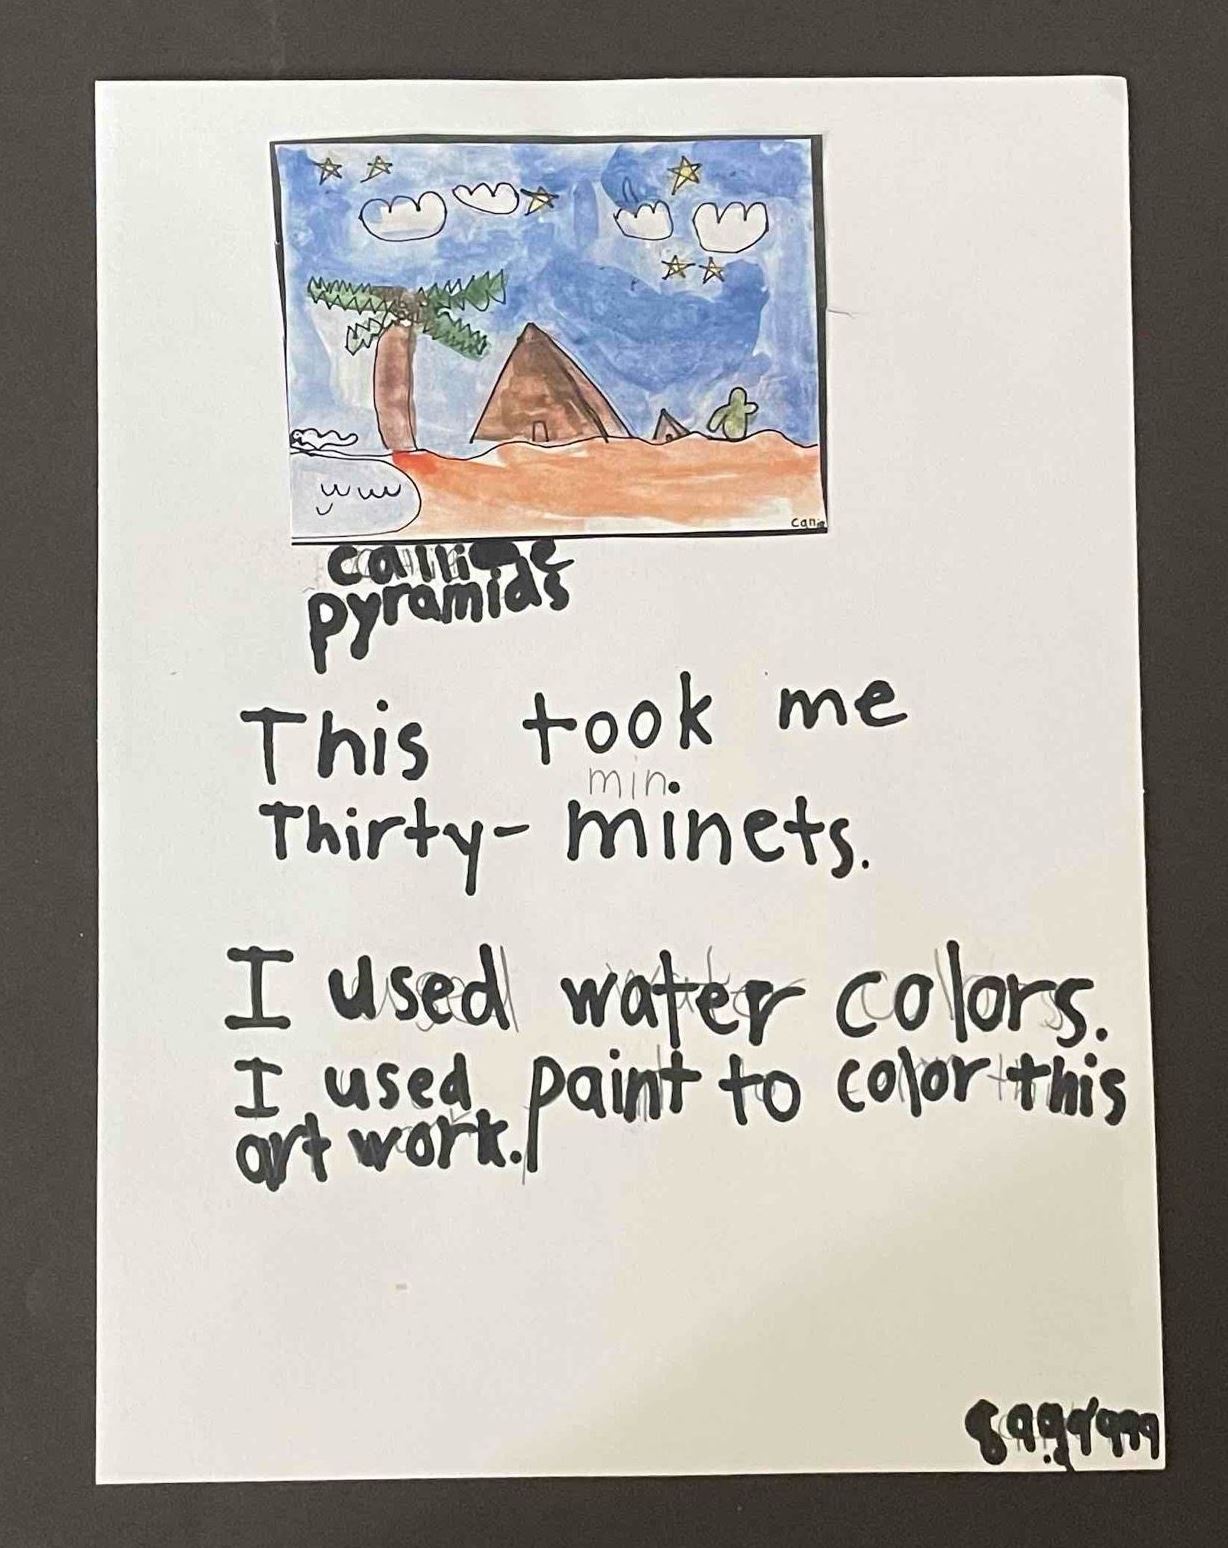 pyramids
This took me
min.
Thirty- minets.
I used water colors.
I used paint to color this
art work.